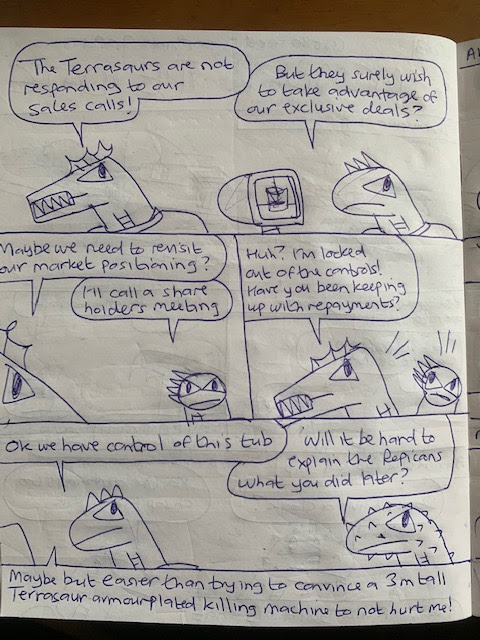 The Terrasaurs are not
responding to our
sales calls!
But they surely wish
to take advantage of
our exclusive deals?
Maybe we need to revisit
our market positioning?
I'll call a share
holders meeting
Huh? I'm locked
out of the controls!
Have you been keeping
up with repayments?
Ok we have control of this tub
Will it be hard to
explain the Repicans
what you did later?
Maybe but easier than trying to convince a 3m tall
Terrasaur armourplated killing machine to not hurt me!